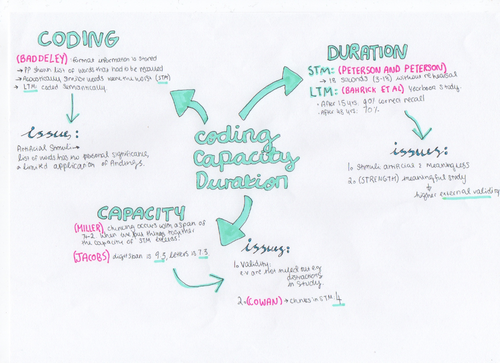 CODING
(BADDELEY) format information is stored
→ PP shown list of words that had to be recalled
→ Acoustically similar words were the worst (STM)
→ LTM: coded semantically
issues:
Artificial Stimuli →
List of words has no personal significance,
limited application of findings.
coding
Capacity
Duration
DURATION
STM: (PETERSON AND PETERSON)
→ 18 seconds (3-18) without rehearsal
LTM: (BAHRICK ET AL) Yearbook study.
• After 15 yrs: 90% correct recall
• After 48 yrs: 70%
issues:
1. Stimuli artificial & meaningless
2. (STRENGTH) meaningful study
higher external validity
CAPACITY
(MILLER) chunking occurs with a span of
7+-2. When we put things together
the capacity of STM extends!
(JACOBS) digit span is 9.3, letters is 7.3
issues:
1. Validity.
EV are not ruled out eg
distractions
in study.
2. (COWAN) → chunks in STM: 4